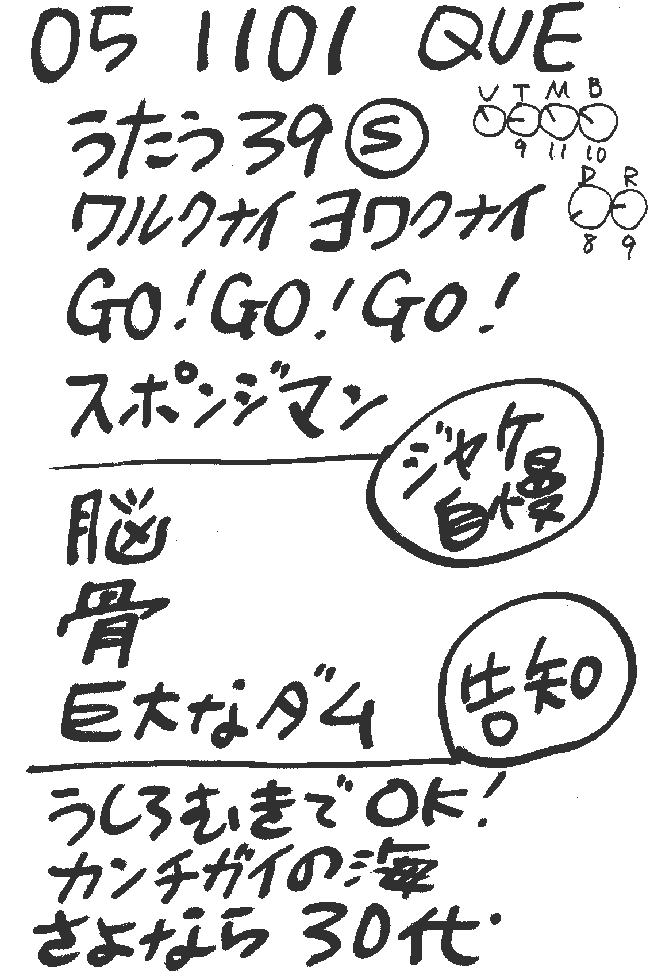 05 1101 QUE
うたう39 S
V T M B
9 11 10
ワルクナイ ヨワクナイ
D R
8 9
GO!GO!GO!
スポンジマン
ジャケ自慢
脳
骨
巨大なダム
告知
うしろむきでOK!
カンチガイの海
さよなら 30代・